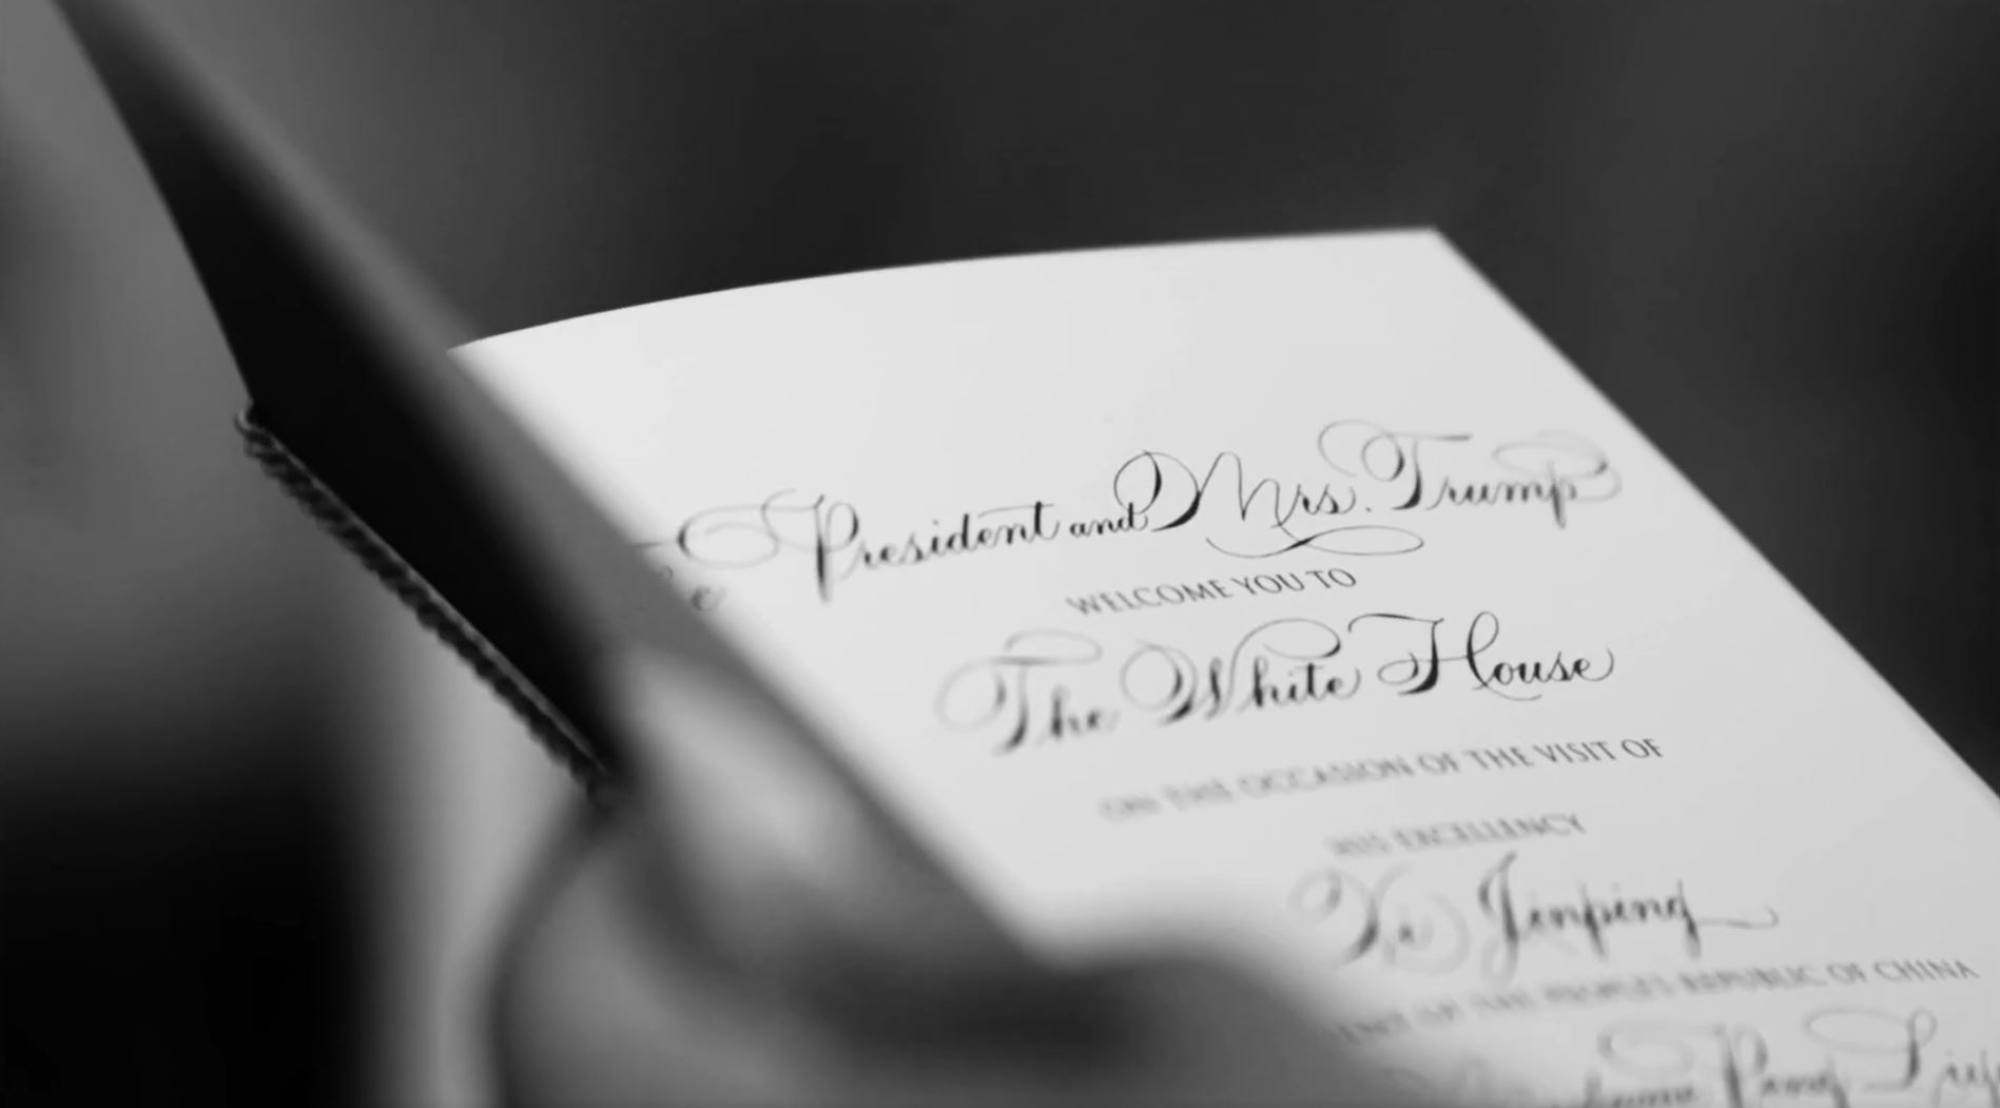 The President and Mrs. Trump
WELCOME YOU TO
The White House
ON THE OCCASION OF THE VISIT OF
HIS EXCELLENCY
Xi Jinping
OF THE PEOPLE'S REPUBLIC OF CHINA
Madame Peng